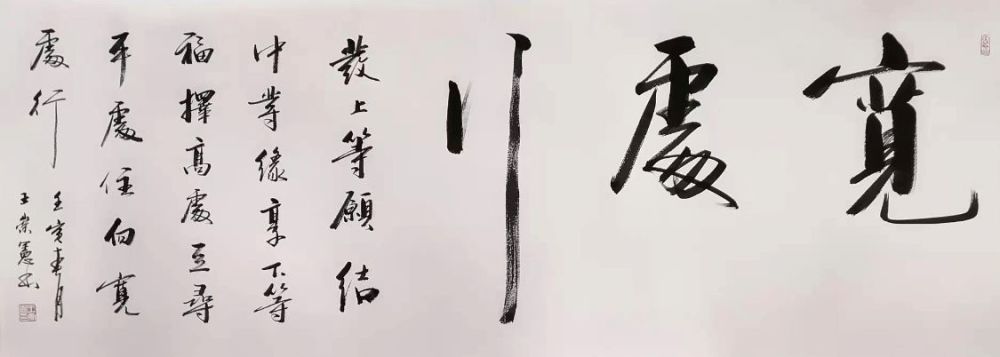 寬處行
發上等願結
中等緣享下等
福擇高處立尋
平處住向寬
處行
壬寅春月
王崇憲书